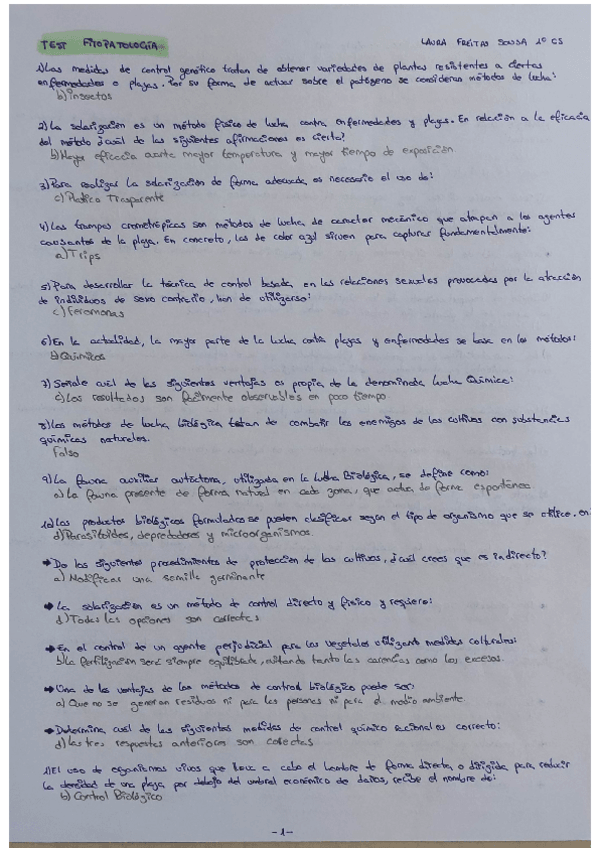 TEST FITOPATOLOGÍA
LAURA FREITAS SOUSA 1º CS
1) Las medidas de control genético tratan de obtener variedades de plantas resistentes a ciertas
enfermedades o plagas. Por su forma de actuar sobre el patógeno se consideran métodos de lucha:
b) insectos
2) La solarización es un método físico de lucha contra enfermedades y plagas. En relación a la eficacia
del método ¿cuál de las siguientes afirmaciones es cierta?
b) Mayor eficacia cuanta mayor temperatura y mayor tiempo de exposición.
3) Para realizar la solarización de forma adecuada es necesario el uso de:
c) Plástico Trasparente
4) Las trampas cromotrópicas son métodos de lucha de caracter mecánico que atrapan a los agentes
causantes de la plaga. En concreto, las de color azul sirven para capturar fundamentalmente:
a) Trips
5) Para desarrollar la técnica de control basada en las relaciones sexuales provocadas por la atracción
de individuos de sexo contrario, han de utilizarse:
c) Feromonas
6) En la actualidad, la mayor parte de la lucha contra plagas y enfermedades se basa en los métodos:
b) Químicos
7) Señale cuál de las siguientes ventajas es propia de la denominada Lucha Química:
c) Los resultados son fácilmente observables en poco tiempo.
8) Los métodos de lucha biológica tratan de combatir los enemigos de los cultivos con substancias
químicas naturales.
Falso
9) La fauna auxiliar autóctona, utilizada en la Lucha Biológica, se define como:
a) La fauna presente de forma natural en cada zona, que actua de forma espontánea.
10) Los productos biológicos formulados se pueden clasificar segun el tipo de organismo que se utilice, en
d) Parasitoides, depredadores y microorganismos.
➡ De los siguientes procedimientos de protección de los cultivos, ¿cuál crees que es indirecto?
a) Modificar una semilla germinante
➡ La solarización es un método de control directo y físico y requiere:
d) Todas las opciones son correctas
➡ En el control de un agente perjudicial para los vegetales utilizando medidas culturales:
b) La fertilización será siempre equilibrada, evitando tanto las carencias como los excesos.
➡ Una de las ventajas de los métodos de control biológico puede ser:
a) Que no se generan residuos ni para las personas ni para el medio ambiente.
➡ Determina cuál de las siguientes medidas de control químico racional es correcto:
d) las tres respuestas anteriores son correctas
1) El uso de organismos vivos que lleva a cabo el hombre de forma directa o dirigida para reducir
la densidad de una plaga por debajo del umbral económico de daños, recibe el nombre de:
b) Control Biológico
-1-